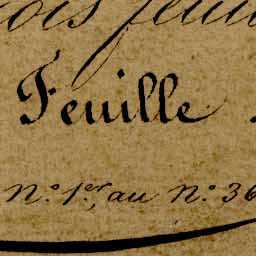 ois feuil
Feuille
N.° 1.er, au N.° 36